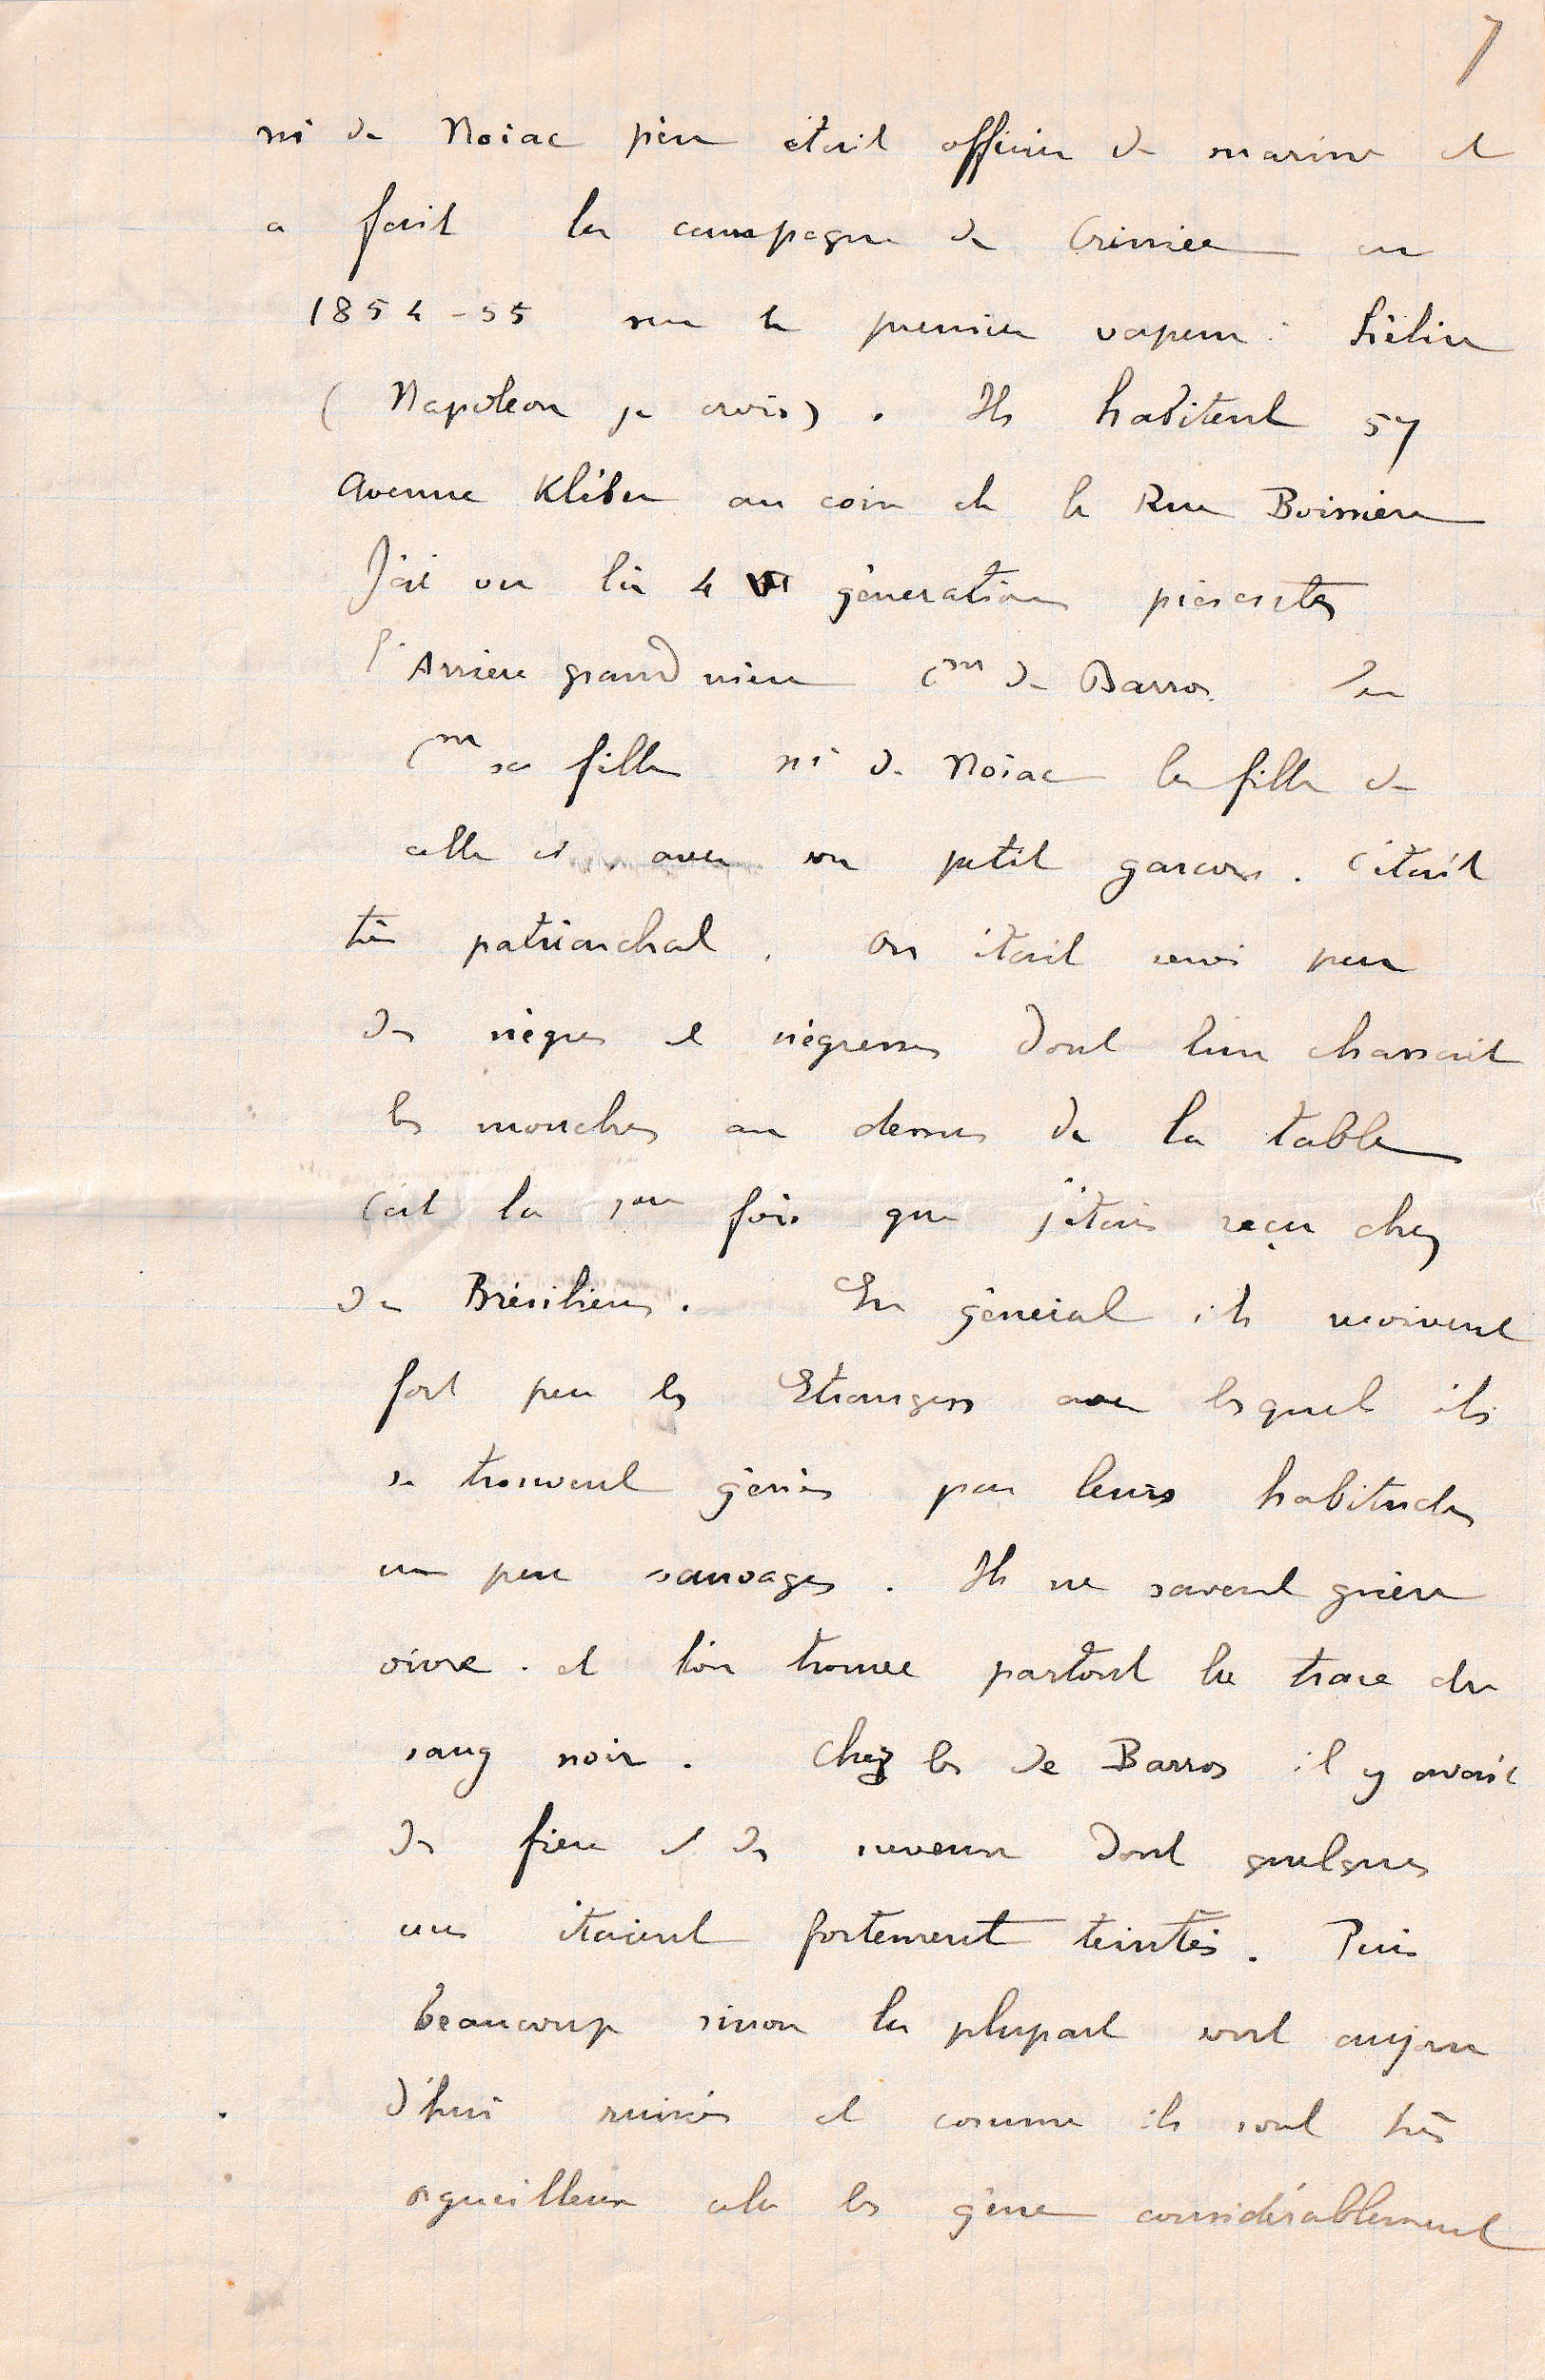 7
né de Noiac père était officier de marine et
a fait la campagne de Crimée en
1854-55 sur le premier vapeur : hélice
( Napoleon je crois) . Ils habitent 57
avenue Kléber au coin de la Rue Boissiere
J'ai vu là 4 générations présentes
l'Arriere grand mere Cm de Barros. La
Cm sa fille né de Noiac la fille de
celle ci avec son petit garcon. C'était
très patriarchal. On était servi par
des nègres et négresses dont l'un chassait
les mouches au dessus de la table
C'est la 1ere fois que j'étais reçu chez
des Brésiliens. En général ils recoivent
fort peu les Etrangers avec lesquel ils
se trouvent gênés par leurs habitudes
un peu sauvages. Ils ne savent guère
vivre. et l'on trouve partout la trace du
sang noir. Chez les de Barros il y avait
des fieu et des neveux dont quelques
uns étaient fortement teintés. Puis
beaucoup sinon la plupart sont aujour
d'hui ruinés et comme ils sont très
orgueilleux cela les gêne considérablement